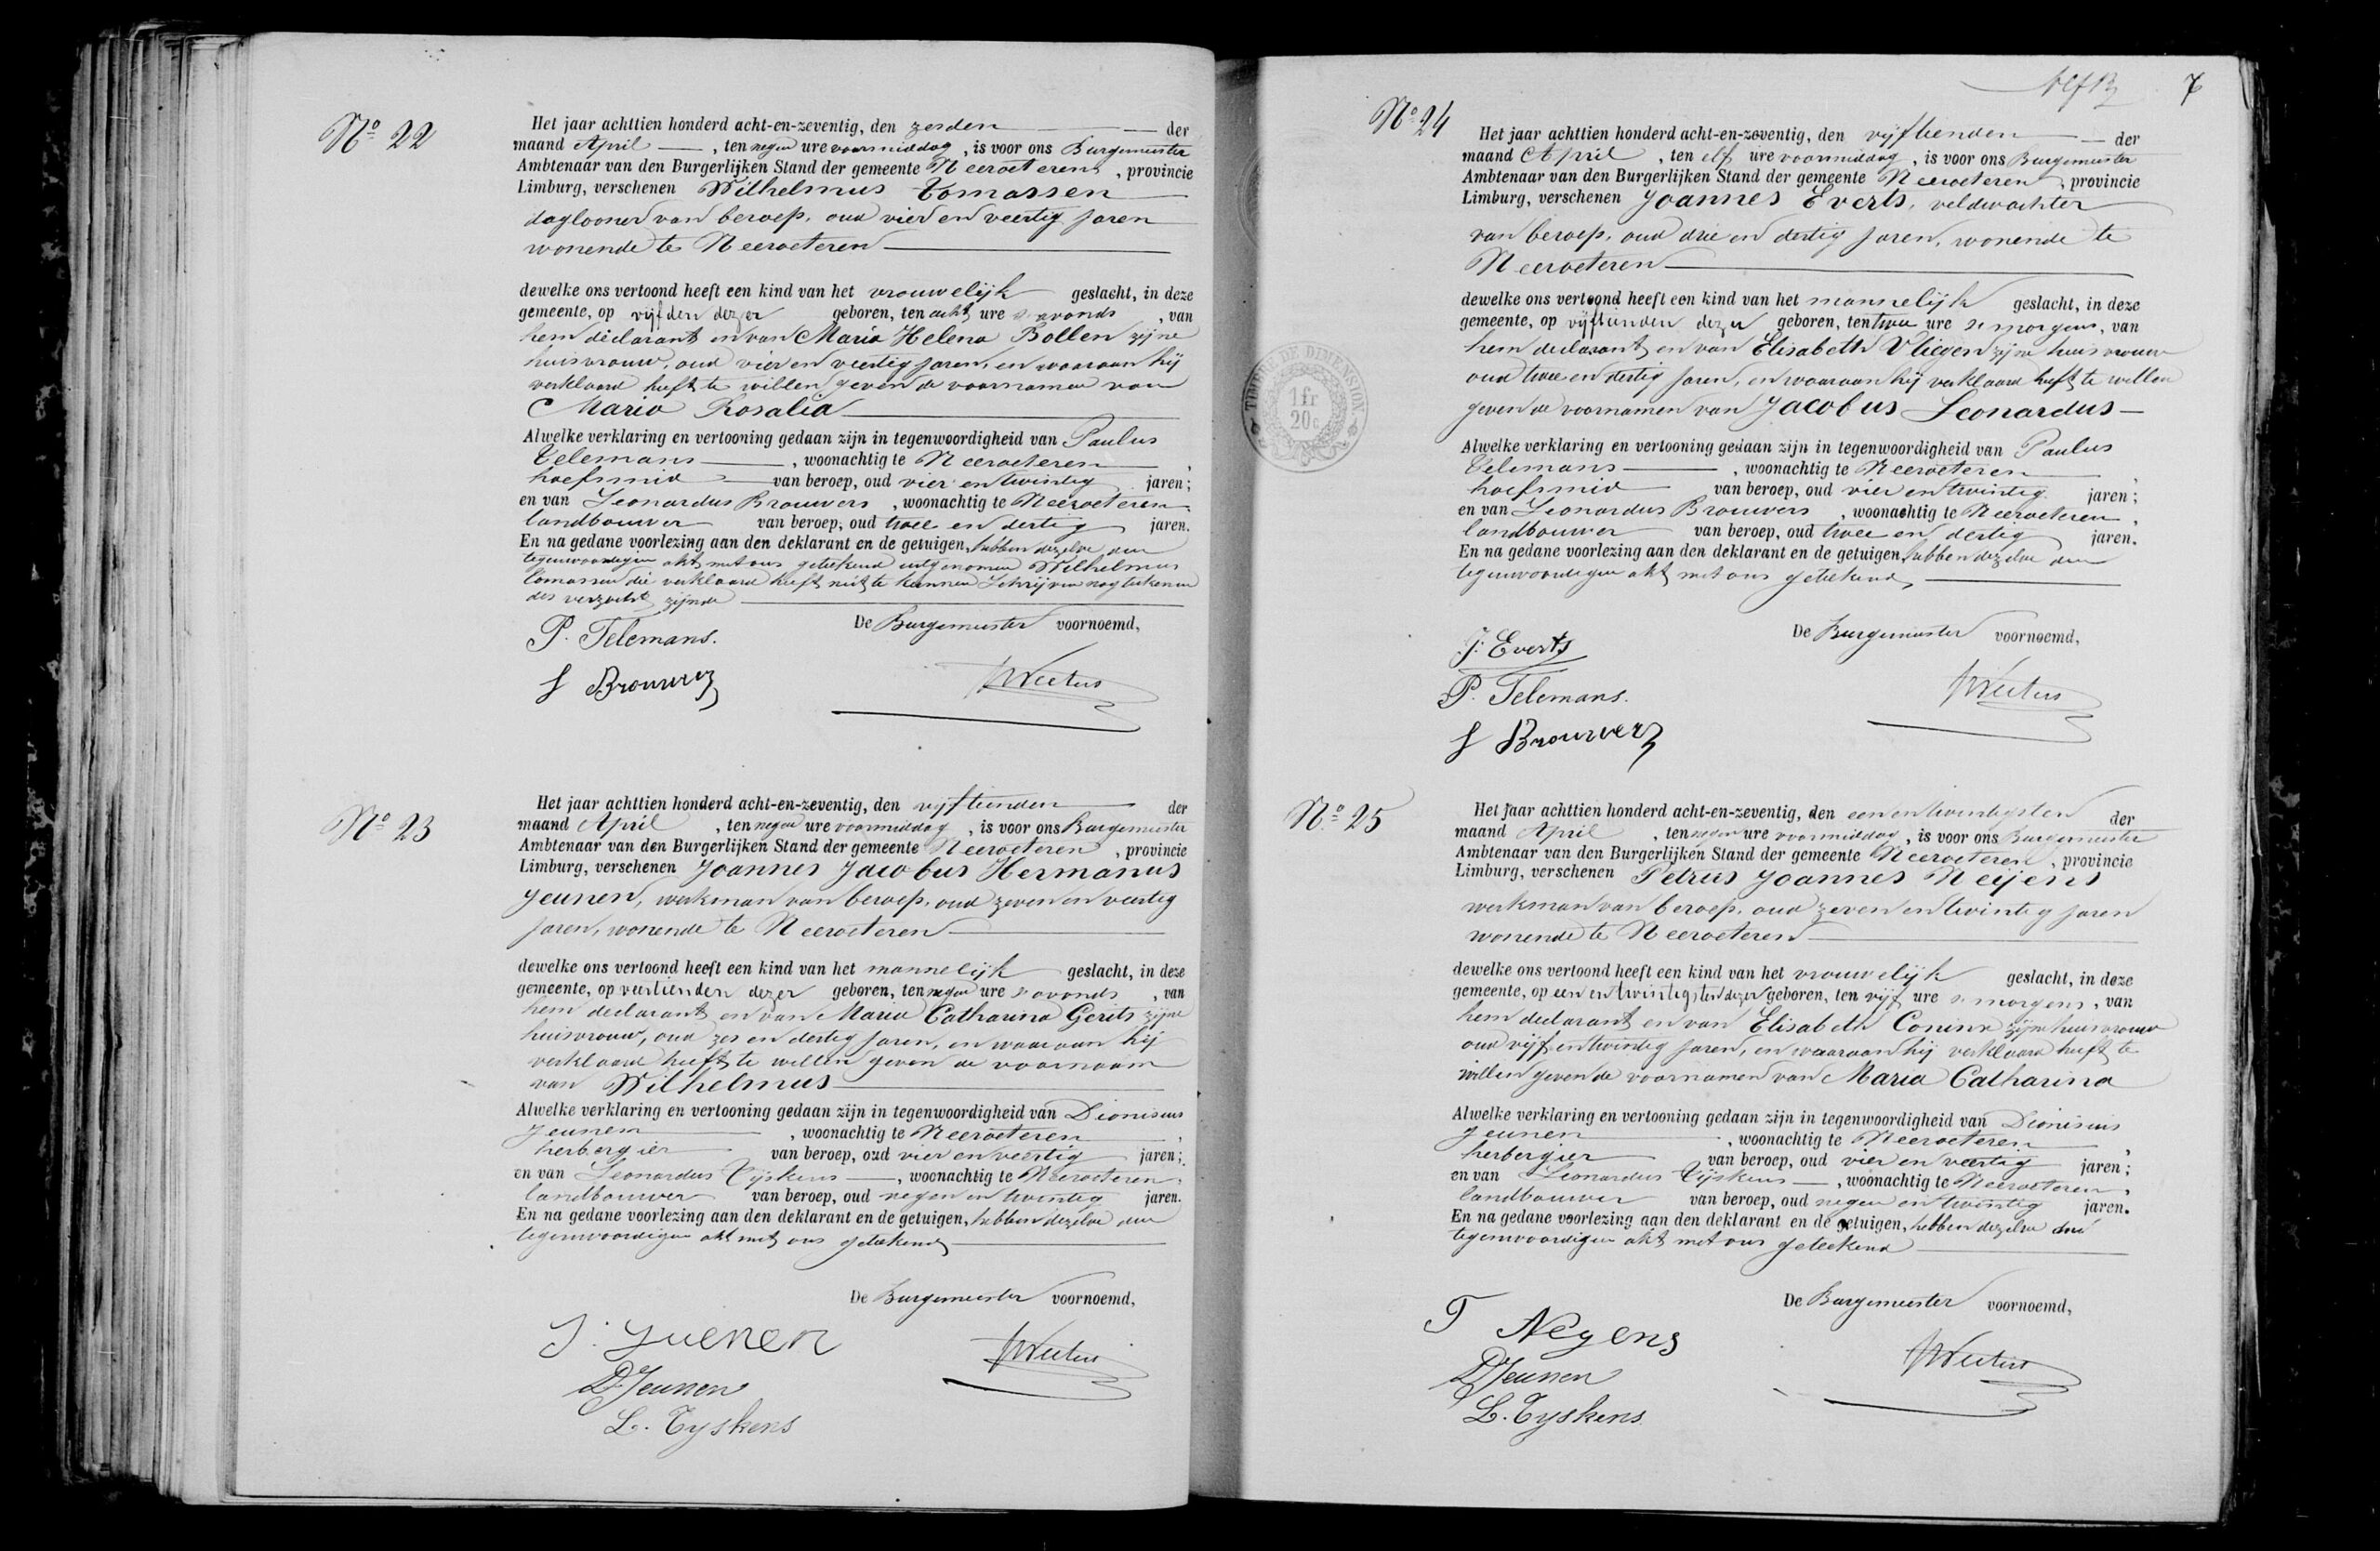 Nº 22
Het jaar achttien honderd acht-en-zeventig, den zesden der
maand April, ten negen ure voormiddag, is voor ons Burgemeester
Ambtenaar van den Burgerlijken Stand der gemeente Neeroeteren, provincie
Limburg, verschenen Wilhelmus Tomassen
daglooner van beroep, oud vier en veertig jaren
wonende te Neeroeteren
dewelke ons vertoond heeft een kind van het vrouwelijk geslacht, in deze
gemeente, op vijfden dezer geboren, ten acht ure s'avonds, van
hem declarant en van Maria Helena Bollen zijne
huisvrouw, oud vier en veertig jaren, en waaraan hij
verklaard heeft te willen geven de voornamen van
Maria Rosalia
Alwelke verklaring en vertooning gedaan zijn in tegenwoordigheid van Paulus
Telemans, woonachtig te Neeroeteren,
hoefsmid van beroep, oud vier en twintig jaren;
en van Leonardus Brouwers, woonachtig te Neeroeteren,
landbouwer van beroep, oud twee en dertig jaren.
En na gedane voorlezing aan den deklarant en de getuigen, hebben dezelve den
tegenwoordigen akt met ons geteekend uitgenomen Wilhelmus
Tomassen die verklaard heeft niet te kunnen schrijven nog teekenen
des verzocht zijnde
De Burgemeester voornoemd,
P. Telemans.
L Brouwers
Nº 23
Het jaar achttien honderd acht-en-zeventig, den vijftienden der
maand April, ten negen ure voormiddag, is voor ons Burgemeester
Ambtenaar van den Burgerlijken Stand der gemeente Neeroeteren, provincie
Limburg, verschenen Joannes Jacobus Hermanus
Jeunen, werkman van beroep, oud zeven en veertig
jaren, wonende te Neeroeteren
dewelke ons vertoond heeft een kind van het mannelijk geslacht, in deze
gemeente, op veertienden dezer geboren, ten negen ure s'avonds, van
hem declarant en van Maria Catharina Gerits zijne
huisvrouw, oud zes en dertig jaren, en waaraan hij
verklaard heeft te willen geven de voornaam
van Wilhelmus
Alwelke verklaring en vertooning gedaan zijn in tegenwoordigheid van Dionisius
Jeunen, woonachtig te Neeroeteren,
herbergier van beroep, oud vier en veertig jaren;
en van Leonardus Tijskens, woonachtig te Neeroeteren,
landbouwer van beroep, oud negen en twintig jaren.
En na gedane voorlezing aan den deklarant en de getuigen, hebben dezelve den
tegenwoordigen akt met ons geteekend
De Burgemeester voornoemd,
J. Juenen
D Jeunen
L. Tyskens
7
TIMBRE DE DIMENSION
1 fr
20 c
Nº 24
Het jaar achttien honderd acht-en-zeventig, den vijftienden der
maand April, ten elf ure voormiddag, is voor ons Burgemeester
Ambtenaar van den Burgerlijken Stand der gemeente Neeroeteren, provincie
Limburg, verschenen Joannes Everts, veldwachter
van beroep, oud drie en dertig jaren, wonende te
Neeroeteren
dewelke ons vertoond heeft een kind van het mannelijk geslacht, in deze
gemeente, op vijftienden dezer geboren, ten twee ure s'morgens, van
hem declarant en van Elisabeth Vliegen zijne huisvrouw
oud twee en dertig jaren, en waaraan hij verklaard heeft te willen
geven de voornamen van Jacobus Leonardus
Alwelke verklaring en vertooning gedaan zijn in tegenwoordigheid van Paulus
Telemans, woonachtig te Neeroeteren,
hoefsmid van beroep, oud vier en twintig jaren;
en van Leonardus Brouwers, woonachtig te Neeroeteren,
landbouwer van beroep, oud twee en dertig jaren.
En na gedane voorlezing aan den deklarant en de getuigen, hebben dezelve den
tegenwoordigen akt met ons geteekend
De Burgemeester voornoemd,
J. Everts
P. Telemans.
L Brouwers
Nº 25
Het jaar achttien honderd acht-en-zeventig, den een en twintigsten der
maand April, ten negen ure voormiddag, is voor ons Burgemeester
Ambtenaar van den Burgerlijken Stand der gemeente Neeroeteren, provincie
Limburg, verschenen Petrus Joannes Neijens
werkman van beroep, oud zeven en twintig jaren
wonende te Neeroeteren
dewelke ons vertoond heeft een kind van het vrouwelijk geslacht, in deze
gemeente, op een en twintigsten dezer geboren, ten vijf ure s'morgens, van
hem declarant en van Elisabeth Coninx zijne huisvrouw
oud vijf en twintig jaren, en waaraan hij verklaard heeft te
willen geven de voornamen van Maria Catharina
Alwelke verklaring en vertooning gedaan zijn in tegenwoordigheid van Dionisius
Jeunen, woonachtig te Neeroeteren,
herbergier van beroep, oud vier en veertig jaren;
en van Leonardus Tijskens, woonachtig te Neeroeteren,
landbouwer van beroep, oud negen en twintig jaren.
En na gedane voorlezing aan den deklarant en de getuigen, hebben dezelve den
tegenwoordigen akt met ons geteekend
De Burgemeester voornoemd,
Neyens
D Jeunen
L. Tyskens